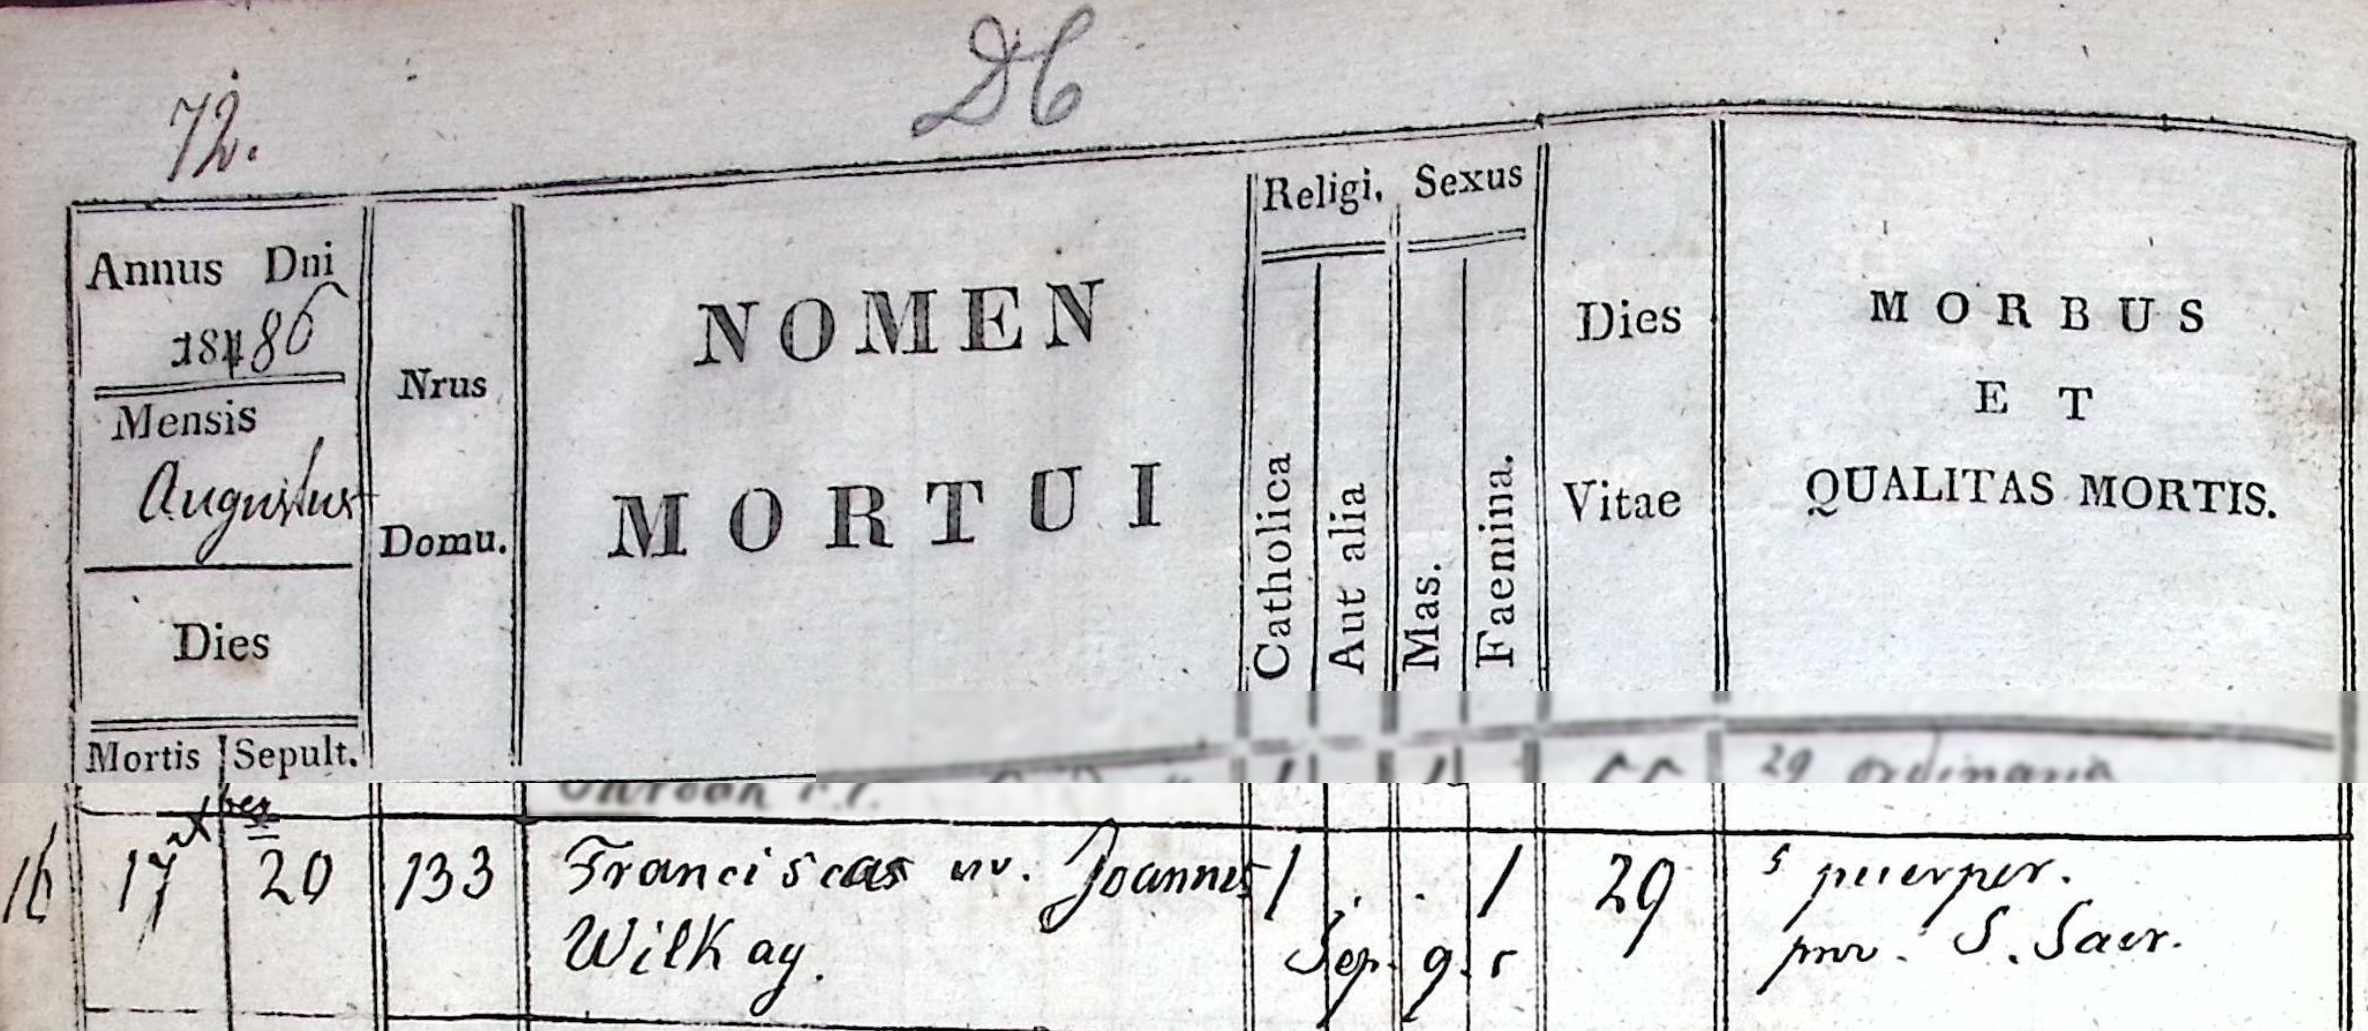 72.
Religi. Sexus
Annus Dni
18 86
Mensis
Augustus
Dies
Mortis Sepult.
Nrus
Domu.
NOMEN
MORTUI
Catholica
Aut alia
Mas.
Faemina.
Dies
Vitae
MORBUS
ET
QUALITAS MORTIS.
29 ordinaria
16 17 20 133 Franciscas uv. Joannes 1 . . 1 29 5 puerper.
Wilk ay. Sep. g. r prov. S. Sacr.